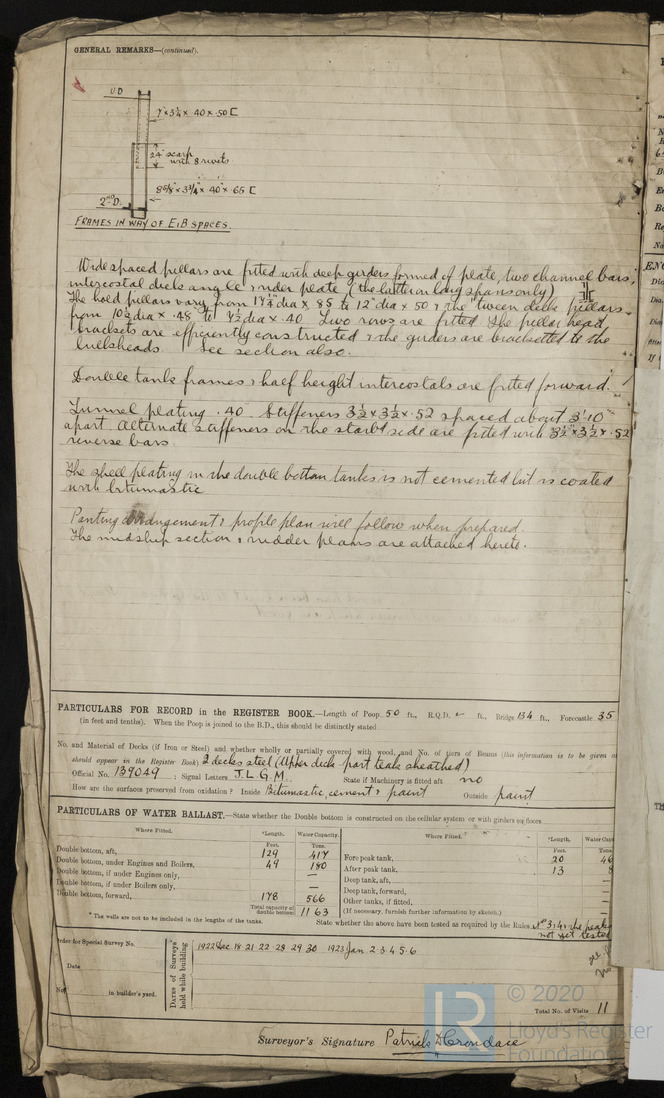 GENERAL REMARKS—(continued).
U.D
7"×3¼× ·40×·50 [
24" scarp
with 8 rivets
8⅝"×3¼"× ·40"× ·65 [
2ND D.
FRAMES IN WAY OF E&B SPACES.
Wide spaced pillars are fitted with deep girders formed of plate, two channel bars,
intercostal deck angle & rider plate (the latter on long spans only)
The hold pillars vary from dia × 85 to 12" dia × 50 & the 'tween deck pillars
from 10½ dia × .48 to dia × .40 Two rows are fitted The pillar head
brackets are efficiently constructed & the girders are bracketted to the
bulkheads. See section also.
Double tank frames & half height intercostals are fitted forward.
Tunnel plating .40 Stiffeners 3½×3½×.52 spaced about 3'10"
apart alternate stiffeners on the starbd side are fitted with 3½"×3½×.52
reverse bars.
The shell plating in the double bottom tanks is not cemented but is coated
with bitumastic
Panting arrangement & profile plan will follow when prepared
The midship section & rudder plans are attached hereto.
PARTICULARS FOR RECORD in the REGISTER BOOK.—Length of Poop 50 ft., R.Q.D. ft., Bridge 134 ft., Forecastle 35
(in feet and tenths). When the Poop is joined to the B.D., this should be distinctly stated
No. and Material of Decks (if Iron or Steel) and whether wholly or partially covered with wood, and No. of tiers of Beams (this information is to be given a
should appear in the Register Book) 2 decks steel (Upper deck part teak sheathed)
Official No. 139049 ; Signal Letters J.L.G.M. State if Machinery is fitted aft no
How are the surfaces preserved from oxidation? Inside Bitumastic, cement & paint Outside paint
PARTICULARS OF WATER BALLAST.—State whether the Double bottom is constructed on the cellular system or with girders on floors
Where Fitted. *Length. Water Capacity. Where Fitted. *Length. Water Capa
Feet. Tons. Feet. Tons
Double bottom, aft, 129 417 Fore peak tank, 20 46
Double bottom, under Engines and Boilers, 49 180 After peak tank, 13 8
Double bottom, if under Engines only, — Deep tank, aft, —
Double bottom, if under Boilers only, — Deep tank, forward, —
Double bottom, forward, 178 566 Other tanks, if fitted, —
Total capacity of double bottom 1163 (If necessary, furnish further information by sketch.)
* The wells are not to be included in the lengths of the tanks. State whether the above have been tested as required by the Rules No 3, 4 & the peaks
not yet tested
Order for Special Survey No.
Date
No. in builder's yard.
Dates of Surveys held while building
1922 Dec. 18 21 22 28 29 30 1923 Jan 2 3 4 5 6
Total No. of Visits 11
Surveyor's Signature Patrick D Crondace
LR
© 2020
Lloyd's Register
Foundation